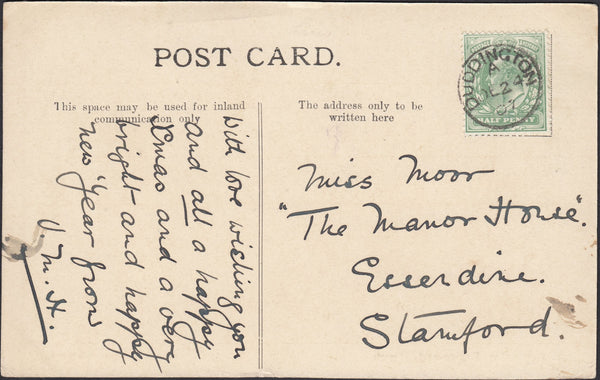 POST CARD.
This space may be used for inland
communication only
The address only to be
written here
DUDDINGTON
HALF PENNY
With love wishing you
and all a happy
Xmas and a very
bright and happy
new year from
M. H.
Miss Moor
"The Manor House".
Esserdine.
Stamford.